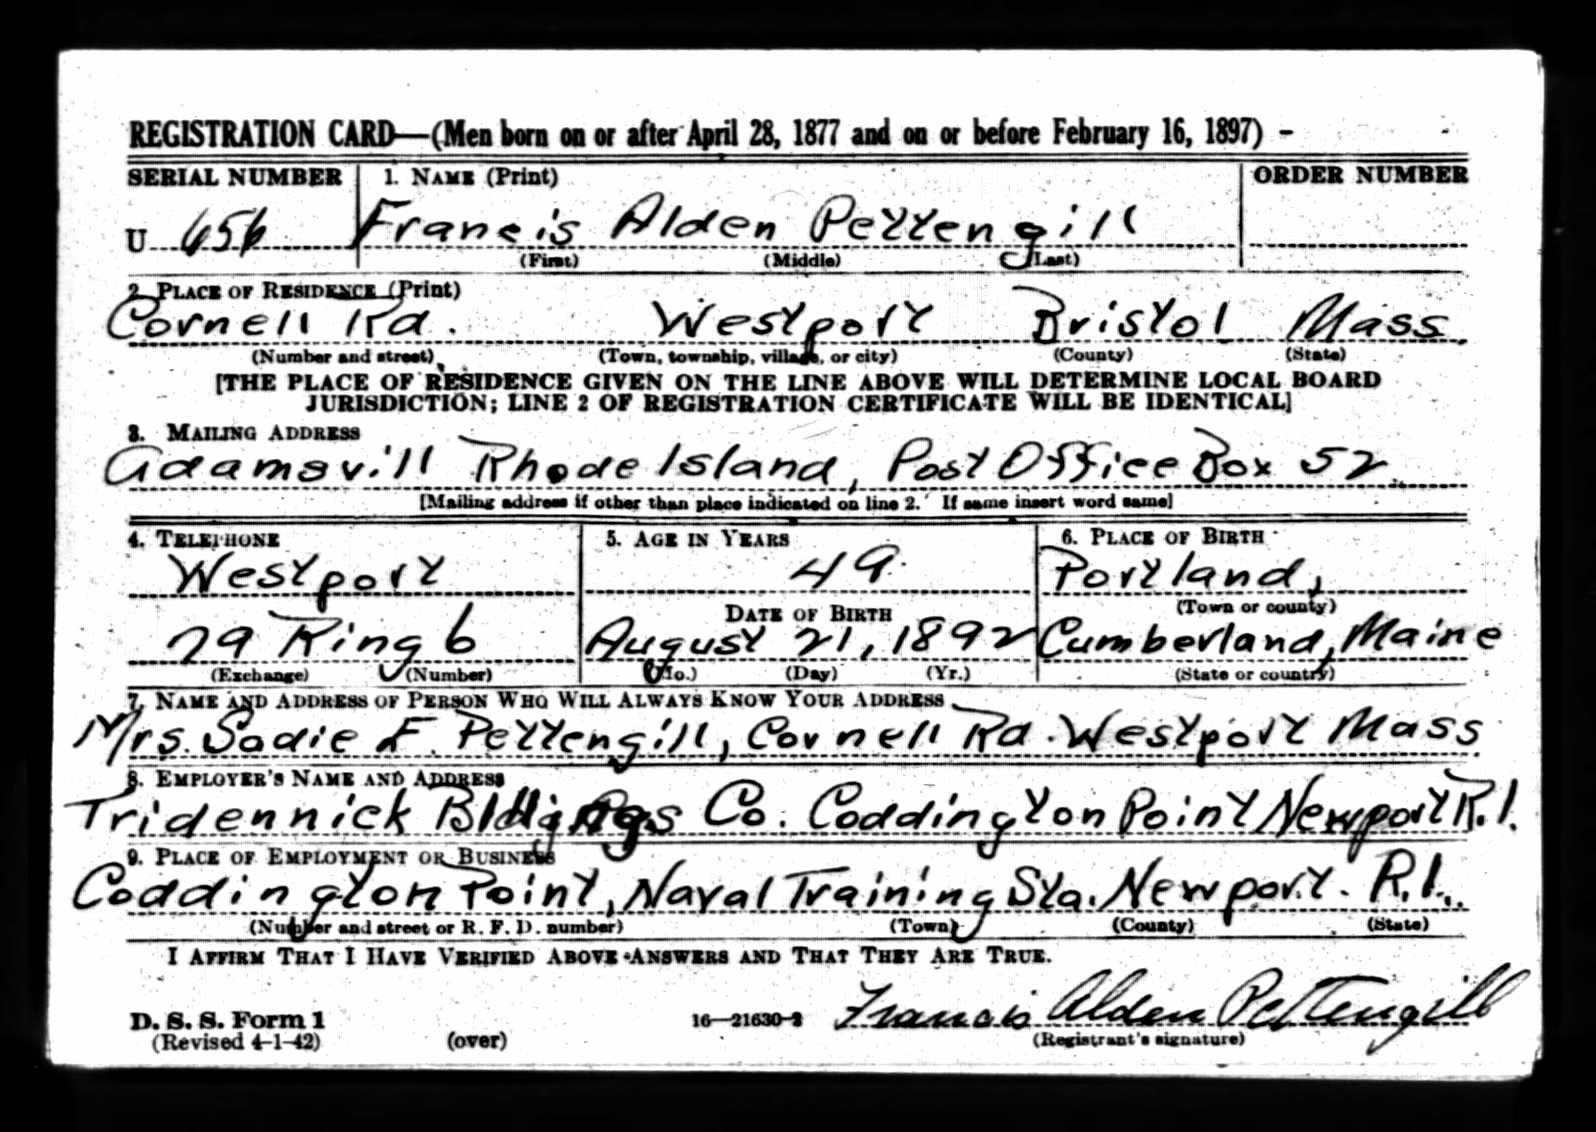 REGISTRATION CARD—(Men born on or after April 28, 1877 and on or before February 16, 1897)
SERIAL NUMBER 1. NAME (Print) ORDER NUMBER
U 656 Francis Alden Pettengill
(First) (Middle) (Last)
2. PLACE OF RESIDENCE (Print)
Cornell Rd. Westport Bristol Mass.
(Number and street) (Town, township, village, or city) (County) (State)
[THE PLACE OF RESIDENCE GIVEN ON THE LINE ABOVE WILL DETERMINE LOCAL BOARD
JURISDICTION; LINE 2 OF REGISTRATION CERTIFICATE WILL BE IDENTICAL]
3. MAILING ADDRESS
Adamsvill Rhode Island, Post Office Box 52
[Mailing address if other than place indicated on line 2. If same insert word same]
4. TELEPHONE 5. AGE IN YEARS 6. PLACE OF BIRTH
Westport 49 Portland,
DATE OF BIRTH (Town or county)
79 Ring 6 August 21, 1892 Cumberland, Maine
(Exchange) (Number) (Mo.) (Day) (Yr.) (State or country)
7. NAME AND ADDRESS OF PERSON WHO WILL ALWAYS KNOW YOUR ADDRESS
Mrs. Sadie F. Pettengill, Cornell Rd. Westport Mass.
8. EMPLOYER'S NAME AND ADDRESS
Tridennick Co. Coddington Point Newport R.I.
9. PLACE OF EMPLOYMENT OR BUSINESS
Coddington Point, Naval Training Sta. Newport. R.I.
(Number and street or R. F. D. number) (Town) (County) (State)
I AFFIRM THAT I HAVE VERIFIED ABOVE ANSWERS AND THAT THEY ARE TRUE.
D. S. S. Form 1 16—21630-2 Francis Alden Pettengill
(Revised 4-1-42) (over) (Registrant's signature)